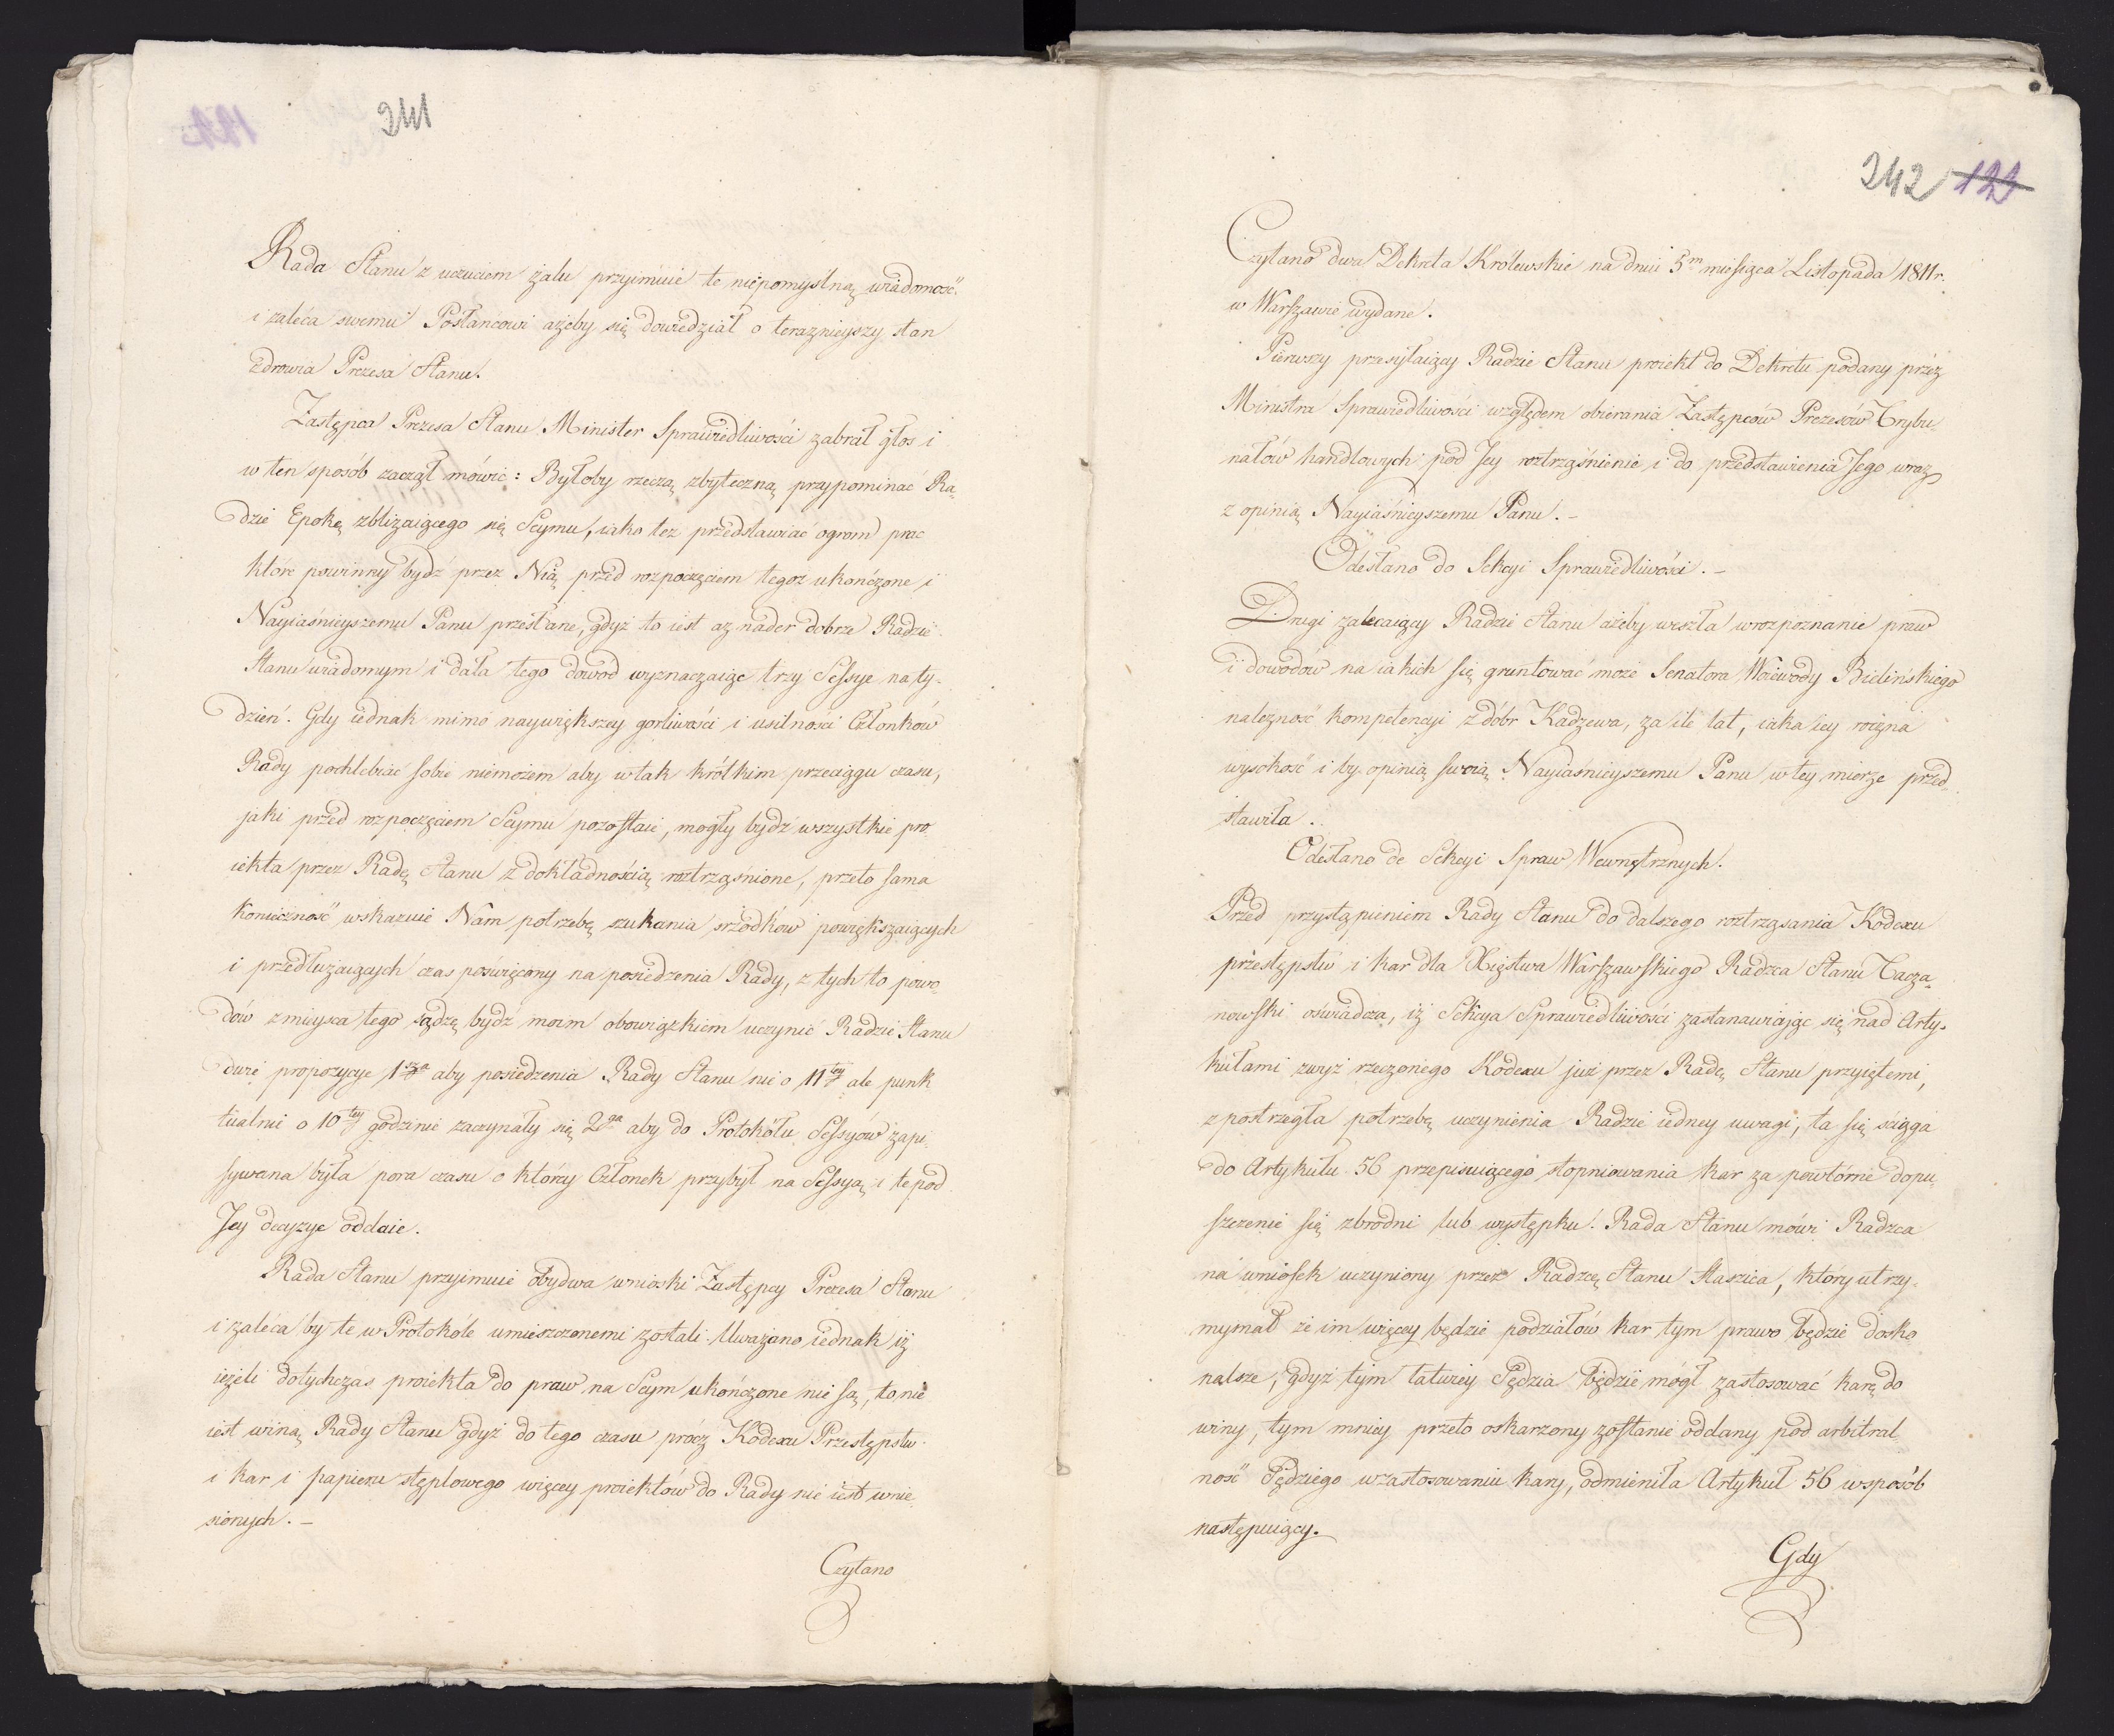 241
Rada Stanu z uczuciem żalu przyimuie tę niepomyślną wiadomość
i zaleca swemu Posłańcowi ażeby się dowiedział o teraznieyszy stan
zdrowia Prezesa Stanu.
Zastępca Prezesa Stanu Minister Sprawiedliwości zabrał głos i
w ten sposób zaczął mówić: Byłoby rzeczą zbyteczną przypominać Ra„
dzie Epokę zbliżaiącego się Seymu, iako też przedstawiać ogrom prac
które powinny bydź przez Nią przed rozpoczęciem tegoż ukończone i
Nayiaśnieyszemu Panu przesłane, gdyż to iest aż nader dobrze Radzie
Stanu wiadomym i dała tego dowód wyznaczaiąc trzy Sessye na ty-
dzień. Gdy iednak mimo naywiększey gorliwości i usilności Członków
Rady pochlebiać sobie niemożem aby w tak krótkim przeciągu czasu,
jaki przed rozpoczęciem Seymu pozostaie, mogły bydź wszystkie pro
iekta przez Radę Stanu z dokładnością roztrząsnione, przeto sama
konieczność wskazuie Nam potrzebę szukania srzodków powiększaiących
i przedłużaiących czas poświęcony na posiedzenia Rady, z tych to powo„
dów z mieysca tego sądzę bydź moim obowiązkiem uczynić Radzie Stanu
dwie propozycye 1sza aby posiedzenia Rady Stanu nie o 11tey ale punk
tualnie o 10tey godzinie zaczynały się 2ga aby do Protokółu Sessyów zapi
sywana była pora czasu o którey Członek przybył na Sessyą i te pod
Jey decyzye oddaie.
Rada Stanu przyimuie obydwa wnioski Zastępcy Prezesa Stanu
i zaleca by te w Protokole umieszczonemi zostali. Uważano iednak iż
ieżeli dotychczas proiekta do praw na Seym ukończone nie są, to nie
iest winą Rady Stanu gdyż do tego czasu prócz Kodexu Przestępstw
i kar i papieru stęplowego więcey proiektów do Rady nie iest wnie
sionych. –
Czytano
242 122
Czytano dwa Dekreta Królewskie na dniu 5m miesiąca Listopada 1811r.
w Warszawie wydane.
Pierwszy przesyłaiący Radzie Stanu proiekt do Dekretu podany przez
Ministra Sprawiedliwości względem obierania Zastępców Prezesów Trybu„
nałów handlowych pod Jey roztrząśnienie i do przedstawienia Jego wraz
z opinią Nayiaśnieyszemu Panu. –
Odesłano do Sekcyi Sprawiedliwości. –
Drugi zalecaiący Radzie Stanu ażeby weszła w rozpoznanie praw
i dowodów na iakich się gruntować może Senatora Woiewody Bielińskiego
należność kompetencyi z dóbr Kadzewa, za ile lat, iaka iey roczna
wysokość i by opinią swoią Nayiaśnieyszemu Panu w tey mierze przed„
stawiła.
Odesłano do Sekcyi Spraw Wewnętrznych.
Przed przystąpieniem Rady Stanu do dalszego roztrząsania Kodexu
przestępstw i kar dla Xięstwa Warszawskiego Radzca Stanu Tacza„
nowski oświadcza, iż Sekcya Sprawiedliwości zastanawiając się nad Arty„
kułami zwyż rzeczonego Kodexu już przez Radę Stanu przyiętemi,
zpostrzegła potrzebę uczynienia Radzie iedney uwagi, ta się ściąga
do Artykułu 56 przepisuiącego stopniowania kar za powtórne dopu„
szczenie się zbrodni lub występku. Rada Stanu mówi Radzca
na wniosek uczyniony przez Radzcę Stanu Staszica, który utrzy„
mymał że im więcey będzie podziałów kar tym prawo będzie dosko
nalsze, gdyż tym łatwiey Sędzia będzie mógł zastosować karę do
winy, tym mniey przeto oskarżony zostanie oddany pod arbitral
ność Sędziego w zastosowaniu kary, odmieniła Artykuł 56 w sposób
następuiący.
Gdy